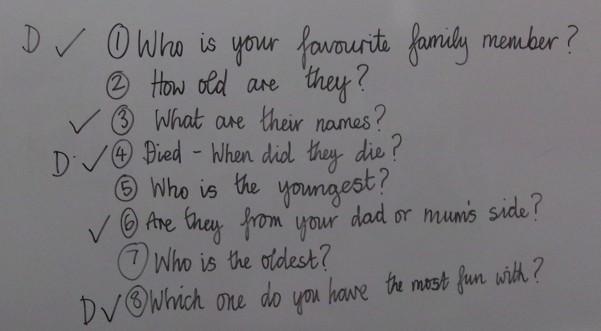 D ✓ ① Who is your favourite family member?
② How old are they?
✓ ③ What are their names?
D. ✓ ④ Died - When did they die?
⑤ Who is the youngest?
✓ ⑥ Are they from your dad or mum's side?
⑦ Who is the oldest?
D ✓ ⑧ Which one do you have the most fun with?